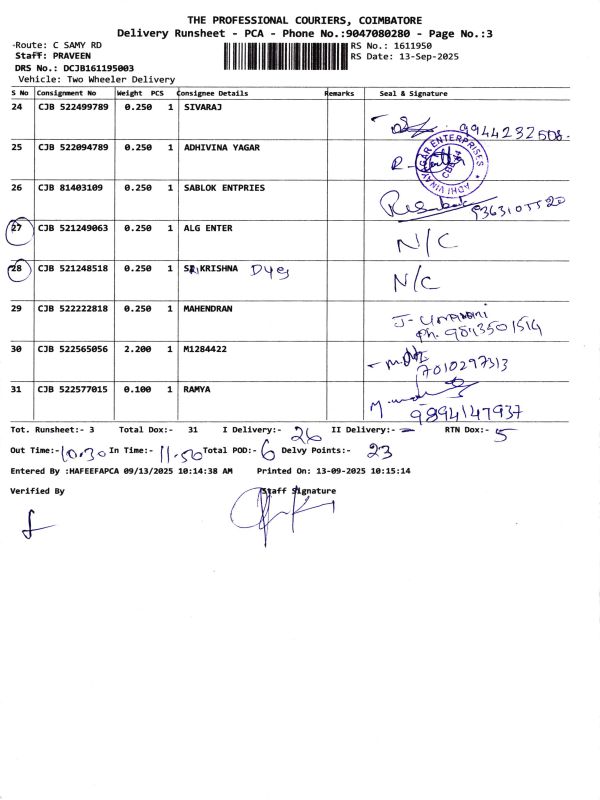 THE PROFESSIONAL COURIERS, COIMBATORE
Delivery Runsheet - PCA - Phone No.:9047080280 - Page No.:3
-Route: C SAMY RD RS No.: 1611950
Staff: PRAVEEN RS Date: 13-Sep-2025
DRS No.: DCJB161195003
Vehicle: Two Wheeler Delivery
S No Consignment No Weight PCS Consignee Details Remarks Seal & Signature
24 CJB 522499789 0.250 1 SIVARAJ
9944232508.
25 CJB 522094789 0.250 1 ADHIVINA YAGAR
ADHI VINAYAGAR ENTERPRISES
26 CJB 81403109 0.250 1 SABLOK ENTPRIES
27 CJB 521249063 0.250 1 ALG ENTER N/C
28 CJB 521248518 0.250 1 SRI KRISHNA Dyg N/C
29 CJB 522222818 0.250 1 MAHENDRAN
Ph. 9843501514
30 CJB 522565056 2.200 1 M1284422
7010297313
31 CJB 522577015 0.100 1 RAMYA
9894147937
Tot. Runsheet:- 3 Total Dox:- 31 I Delivery:- 26 II Delivery:- — RTN Dox:- 5
Out Time:- 10.30 In Time:- 11.50 Total POD:- 6 Delvy Points:- 23
Entered By :HAFEEFAPCA 09/13/2025 10:14:38 AM Printed On: 13-09-2025 10:15:14
Verified By Staff Signature